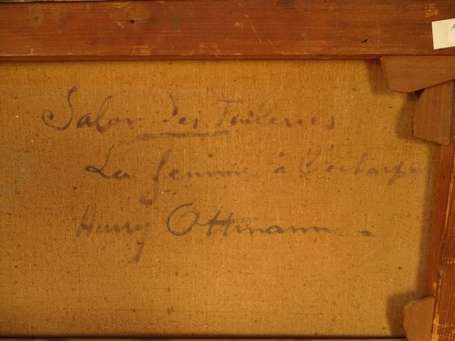 Salon Des Tuileries
La femme à l'écharpe
Henry Ottmann.